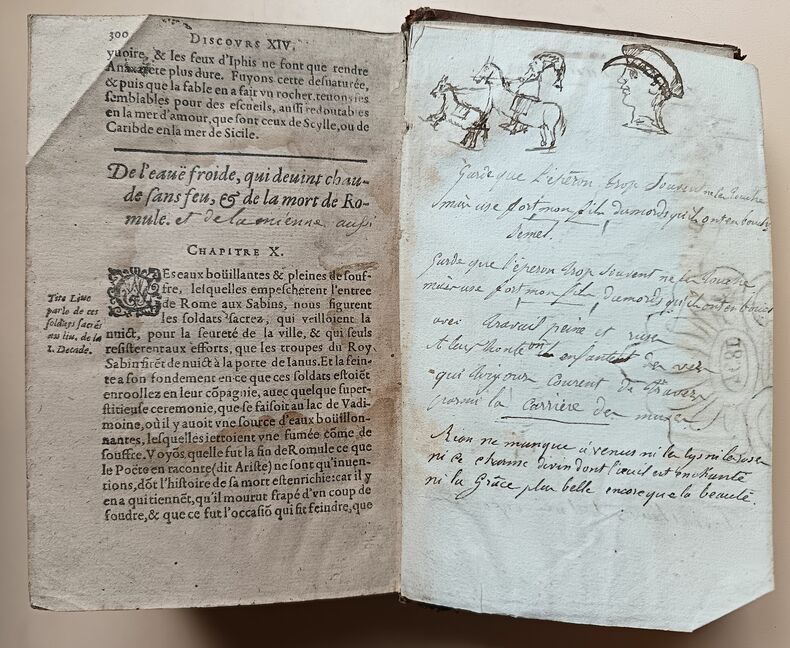 300 DISCOVRS XIV.
yuoire, & les feux d'Iphis ne font que rendre
Anaxarete plus dure. Fuyons cette desnaturée,
& puis que la fable en a fait vn rocher, tenons les
semblables pour des escueils, aussi redoutables
en la mer d'amour, que sont ceux de Scylle, ou de
Caribde en la mer de Sicile.
De l'eauë froide, qui deuint chau-
de sans feu, & de la mort de Ro-
mule. et de la mienne aussi
CHAPITRE X.
Tite Liue
parle de ces
soldats sacrés
au liu. de la
1. Decade.
LEs eaux boüillantes & pleines de souf-
fre, lesquelles empescherent l'entree
de Rome aux Sabins, nous figurent
les soldats sacrez, qui veilloient la
nuict, pour la seureté de la ville, & qui seuls
resisterent aux efforts, que les troupes du Roy
Sabin firēt de nuict à la porte de Ianus. Et la feinte
a son fondement en ce que ces soldats estoiēt
enroollez en leur cōpagnie, auec quelque super-
stitieuse ceremonie, que se faisoit au lac de Vadi-
moine, où il y auoit vne source d'eaux boüillon-
nantes, lesquelles iettoient vne fumée cōme de
souffre. Voyōs, quelle fut la fin de Romule ce que
le Poëte en raconte (dit Ariste) ne sont qu'inuen-
tions, dōt l'histoire de sa mort est enrichie: car il y
en a qui tiennēt, qu'il mourut frapé d'vn coup de
foudre, & que ce fut l'occasiō qui fit feindre, que
Garde que l'éperon trop souvent ne la touche
fort mon fils du mords qu'ils ont en bouche
Garde que l'éperon trop souvent ne la touche
fort mon fils du mords qu'ils ont en bouche
avec travail peine et
qui toujours courent de travers
parmi la carrière des muses
Rien ne manque à venus ni les lys ni les roses
ni ce charme divin dont l'oeuil est enchanté
ni la Grâce plus belle encore que la beauté.